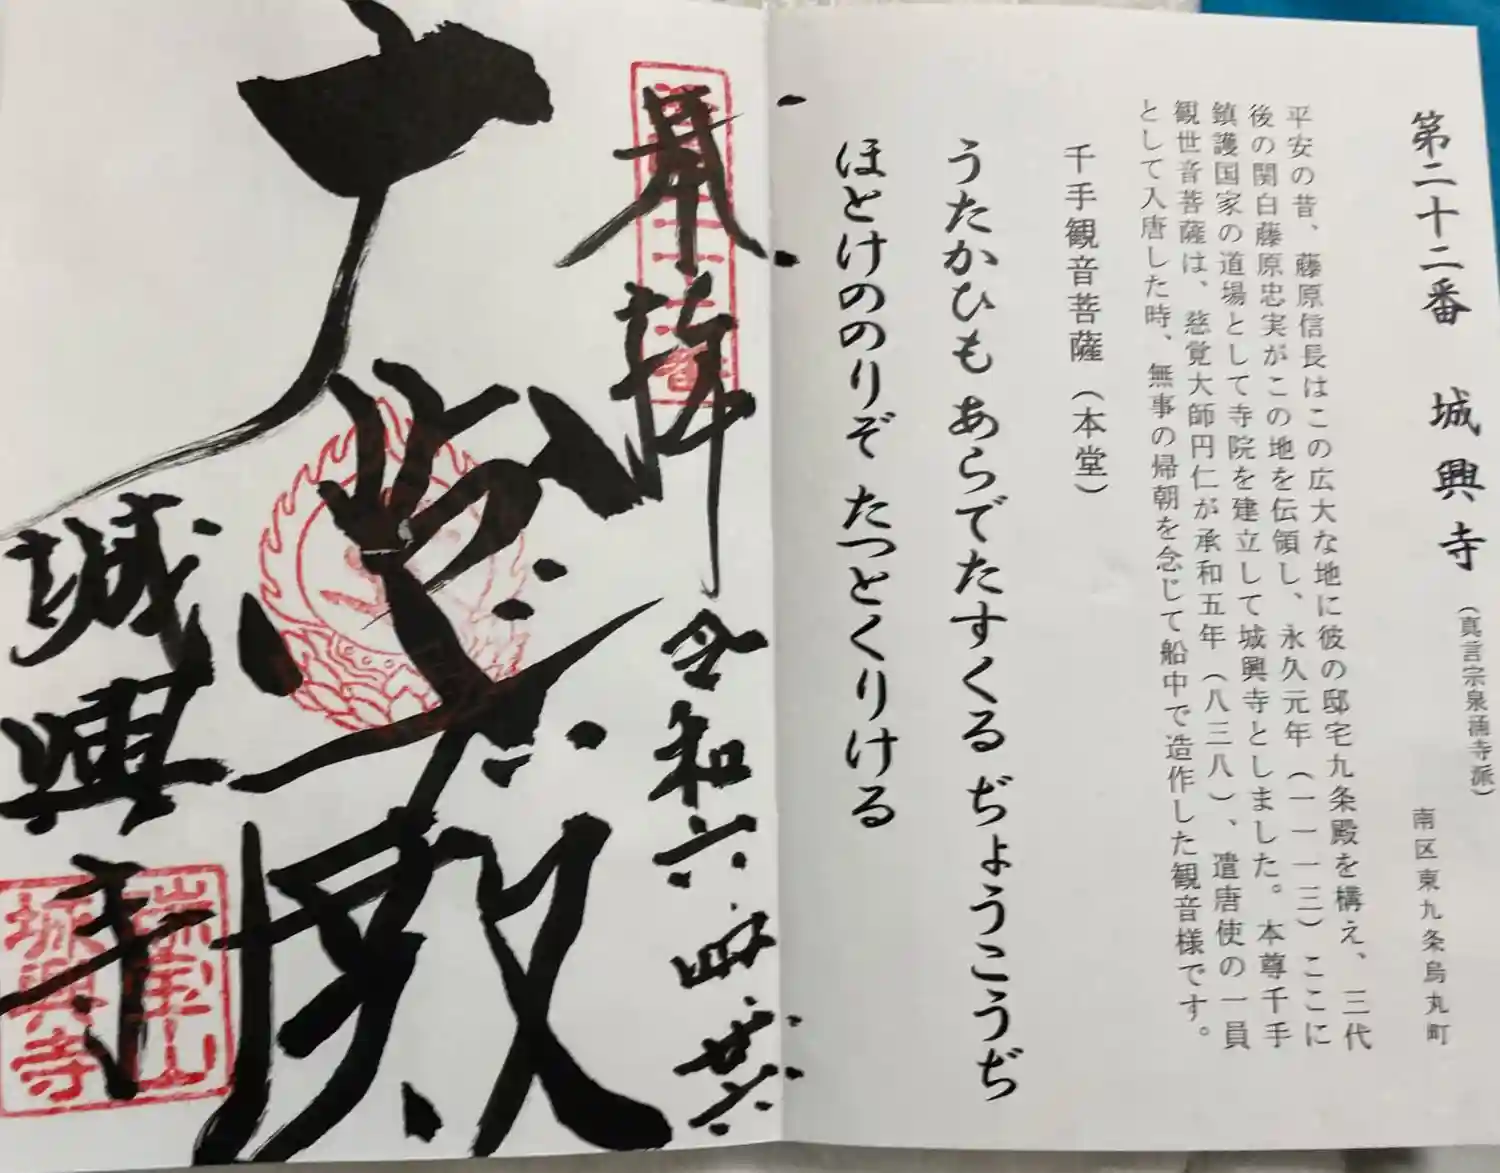 第二十二番 城興寺 (真言宗泉涌寺派)
南区東九条烏丸町
平安の昔、藤原信長はこの広大な地に彼の邸宅九条殿を構え、三代
後の関白藤原忠実がこの地を伝領し、永久元年(一一一三)ここに
鎮護国家の道場として寺院を建立して城興寺としました。本尊千手
観世音菩薩は、慈覚大師円仁が承和五年(八三八)、遣唐使の一員
として入唐した時、無事の帰朝を念じて船中で造作した観音様です。
千手観音菩薩(本堂)
うたかひも あらでたすくる ぢょうこうぢ
ほとけののりぞ たつとくりける
奉拝
令和六 四 廿六
大悲殿
城興寺
瑞宝山
城興寺